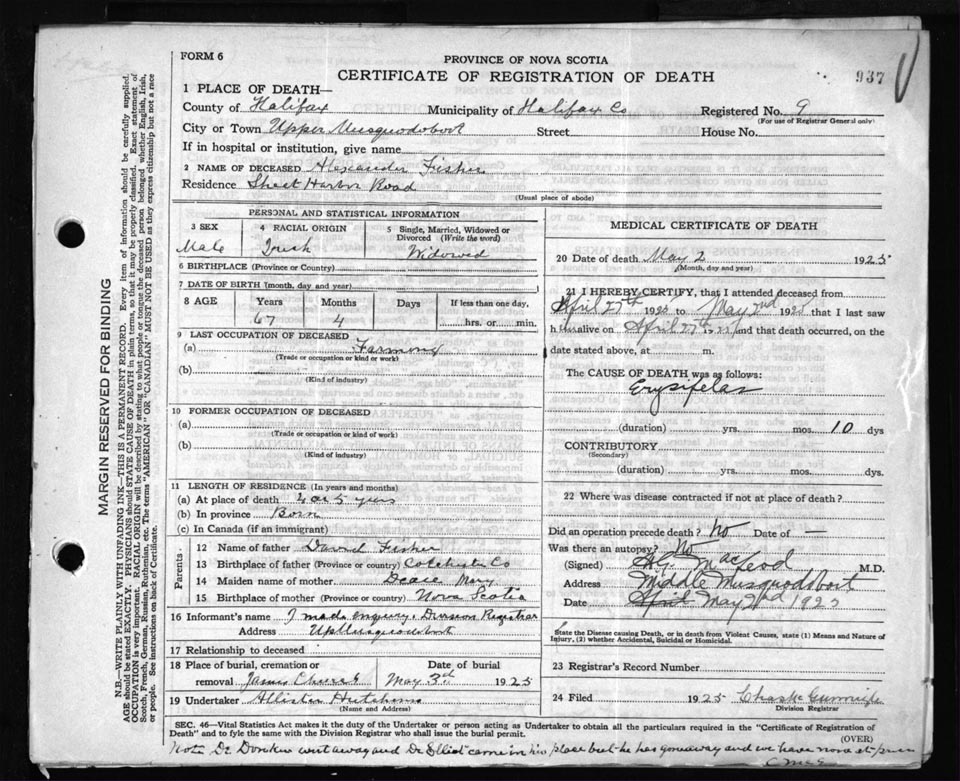 FORM 6
PROVINCE OF NOVA SCOTIA
CERTIFICATE OF REGISTRATION OF DEATH
937
1 PLACE OF DEATH—
County of Halifax Municipality of Halifax Co Registered No. 9
(For use of Registrar General only)
City or Town Upper Musquodoboit Street House No.
If in hospital or institution, give name
2 NAME OF DECEASED Alexander Fisher
Residence Sheet Harbor Road
(Usual place of abode)
PERSONAL AND STATISTICAL INFORMATION
3 SEX 4 RACIAL ORIGIN 5 Single, Married, Widowed or Divorced (Write the word)
Male Irish Widowed
6 BIRTHPLACE (Province or Country)
7 DATE OF BIRTH (month, day and year)
8 AGE Years Months Days If less than one day,
67 4 hrs. or min.
9 LAST OCCUPATION OF DECEASED
(a) Farming
(Trade or occupation or kind of work)
(b)
(Kind of industry)
10 FORMER OCCUPATION OF DECEASED
(a)
(Trade or occupation or kind of work)
(b)
(Kind of industry)
11 LENGTH OF RESIDENCE (In years and months)
(a) At place of death 4 or 5 years
(b) In province Born
(c) In Canada (if an immigrant)
Parents
12 Name of father David Fisher
13 Birthplace of father (Province or country) Colchester Co
14 Maiden name of mother Mary
15 Birthplace of mother (Province or country) Nova Scotia
16 Informant's name I made enquiry. Division Registrar
Address Up Musquodoboit
17 Relationship to deceased
18 Place of burial, cremation or removal James Church Date of burial May 3rd 1925
19 Undertaker Allister Hutchinson
(Name and Address)
MEDICAL CERTIFICATE OF DEATH
20 Date of death May 2 1925
(Month, day and year)
21 I HEREBY CERTIFY, that I attended deceased from
April 27th 1925 to May 2nd 1925 that I last saw
h alive on April 27th and that death occurred, on the
date stated above, at m.
The CAUSE OF DEATH was as follows:
Erysipelas
(duration) yrs. mos. 10 dys
CONTRIBUTORY
(Secondary)
(duration) yrs. mos. dys.
22 Where was disease contracted if not at place of death?
Did an operation precede death? No Date of —
Was there an autopsy? No
(Signed) MacLeod M.D.
Address Middle Musquodoboit
Date April May 2nd 192
State the Disease causing Death, or in death from Violent Causes, state (1) Means and Nature of
Injury, (2) whether Accidental, Suicidal or Homicidal.
23 Registrar's Record Number
24 Filed 1925
Division Registrar
SEC. 46—Vital Statistics Act makes it the duty of the Undertaker or person acting as Undertaker to obtain all the particulars required in the "Certificate of Registration of
Death" and to file same with the Division Registrar who shall issue the burial permit.
(OVER)
Note Dr. Donkin went away and Dr Elliot came in his place but he has gone away and we have none at
C McG
MARGIN RESERVED FOR BINDING
N.B.—WRITE PLAINLY WITH UNFADING INK—THIS IS A PERMANENT RECORD. Every item of information should be carefully supplied.
AGE should be stated EXACTLY. PHYSICIANS should STATE CAUSE OF DEATH in plain terms, so that it may be properly classified. Exact statement of
OCCUPATION is very important. RACIAL ORIGIN will be described by stating to what people or tongue the deceased person belonged whether English, Irish,
Scotch, French, German, Russian, Ruthenian, etc. The terms "AMERICAN" OR "CANADIAN" MUST NOT BE USED as they express citizenship but not a race
or people. See instructions on back of Certificate.